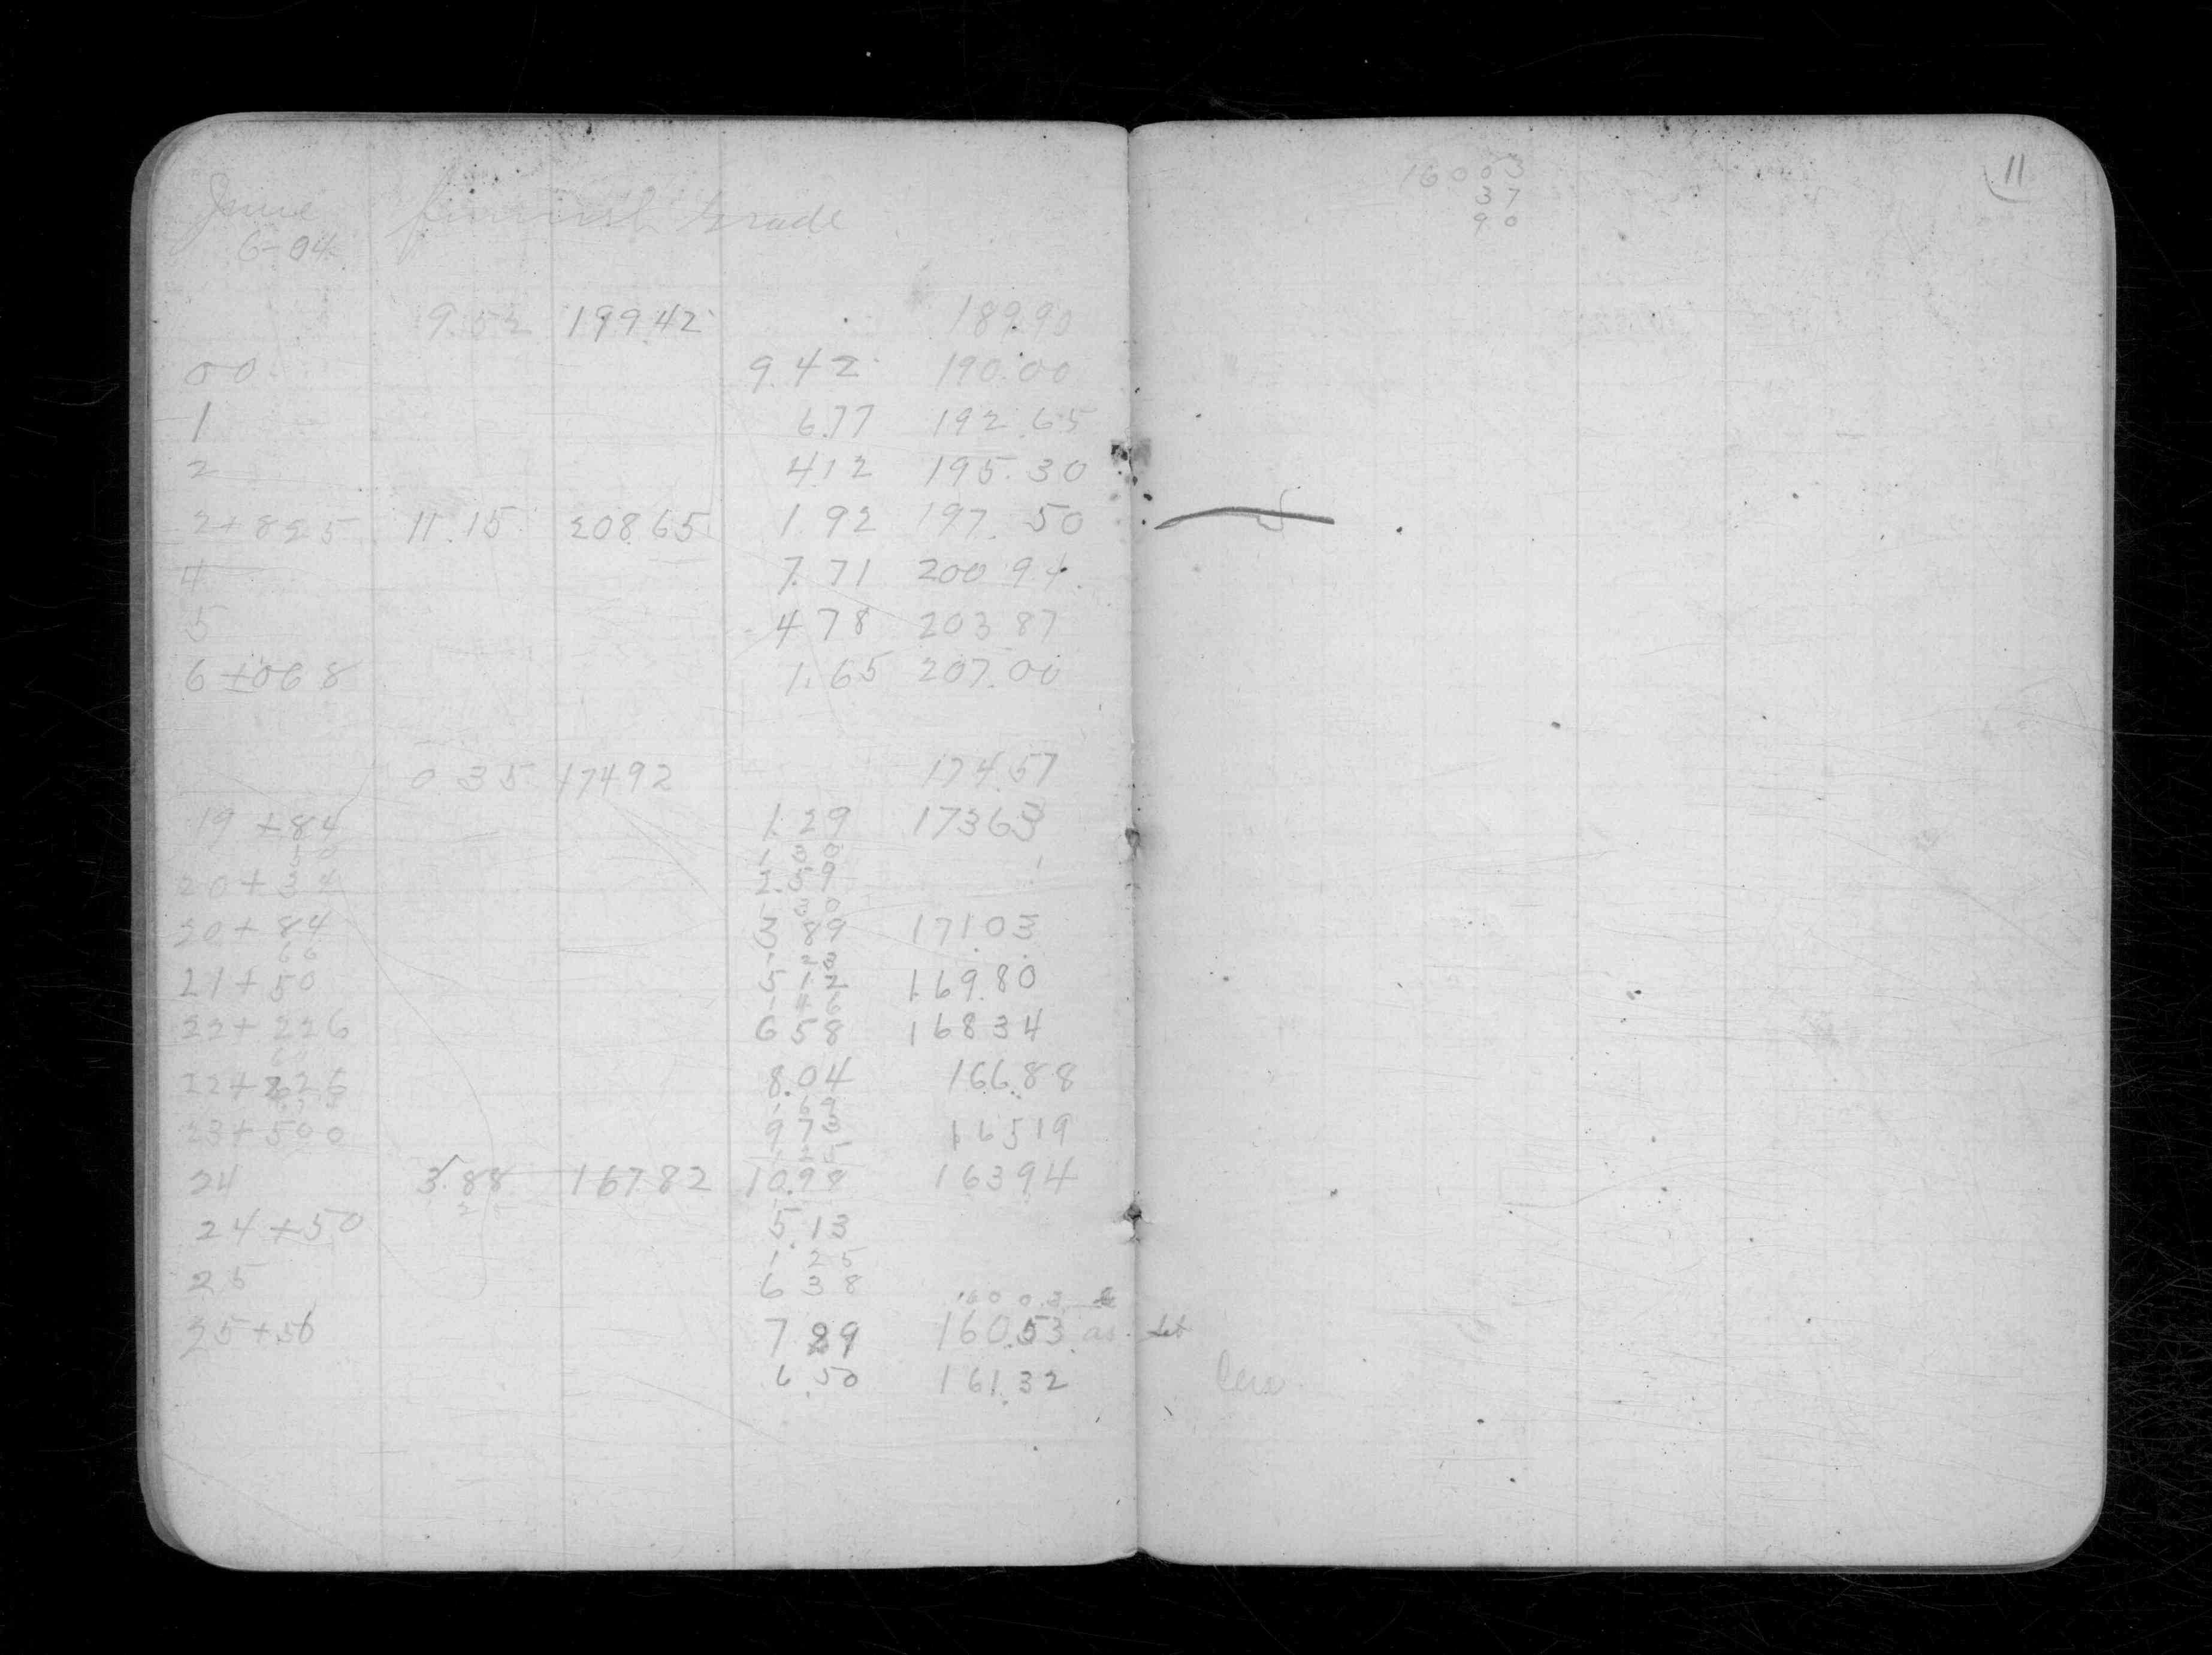 June finish Grade
6-04
9.52 199.42 189.90
00 9.42 190.00
1 6.77 192.65
2 4.12 195.30
2+825 11.15 208.65 1.92 197.50
4 7.71 200.94
5 4.78 203.87
6+068 1.65 207.00
0.35 174.92 174.57
19+84 1.29 173.63
1 30
20+34 2.59
1 30
20+84 3 89 171.03
66 1 23
21+50 5 12 169.80
1 46
22+226 6 58 168 34
22+826 8.04 166.88
1 69
23+500 9 73 165 19
1 25
24 3.88 167.82 10.98 163 94
24+50 5.13
1 25
25 6 38
160 03
25+50 7 89 160.53 as set
6.50 161.32
11
16003
37
90